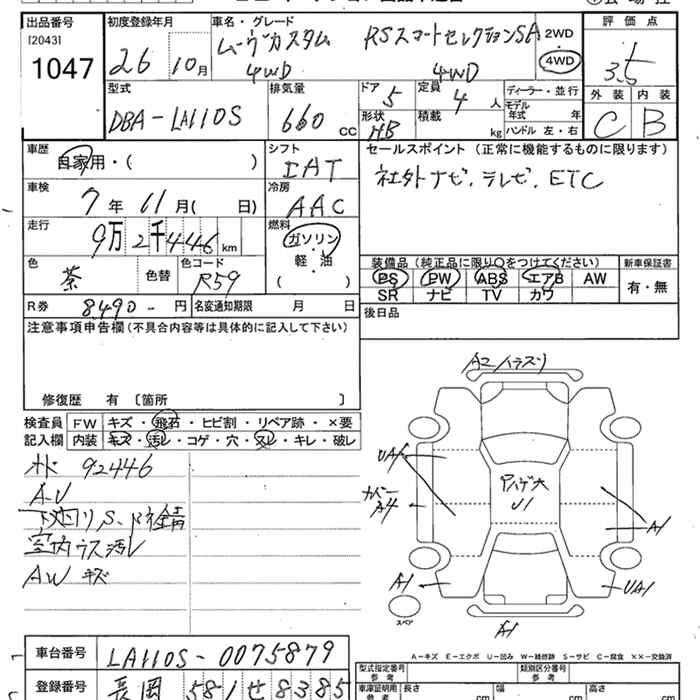 出品番号 初度登録年月 車名・グレード 評価点
[2043] ムーヴカスタム RSスマートセレクションSA 2WD
1047 26 10月 4WD 4WD 4WD 3.5
型式 排気量 ドア 5 定員 4人 ディーラー・並行 外装 内装
DBA-LA110S 660cc 形状 HB 積載 kg モデル年式 年 C B
ハンドル 左・右
車歴 シフト セールスポイント (正常に機能するものに限ります)
自家用・( ) IAT 社外ナビ.テレビ.ETC
車検 冷房
7年 11月( 日) AAC
走行 燃料
9万2千446km ガソリン
軽・油
( )
色 色替 色コード 装備品(純正品に限り○をつけてください) 新車保証書
茶 R59 PS PW ABS エアB AW 有・無
SR ナビ TV カワ
R券 8490-円 名変通知期限 月 日 後日品
注意事項申告欄(不具合内容等は具体的に記入して下さい)
修復歴 有 〔箇所 〕
検査員 FW キズ・飛石・ヒビ割・リペア跡・×要
記入欄 内装 キズ・汚レ・コゲ・穴・スレ・キレ・破レ
92446
AU
下回りS、
室内ウス汚レ
AW キズ
A2
UA1
カバー A4
U1
A1
A1
UA1
A1
スペア
A-キズ E-エクボ U-凹み W-補修跡 S-サビ C-腐食 ××-交換済
車台番号 LA110S-0075879
登録番号 長岡 581せ8385
型式指定番号 参考 類別区分番号 参考
車庫証明用 参考 長さ cm 幅 cm 高さ cm